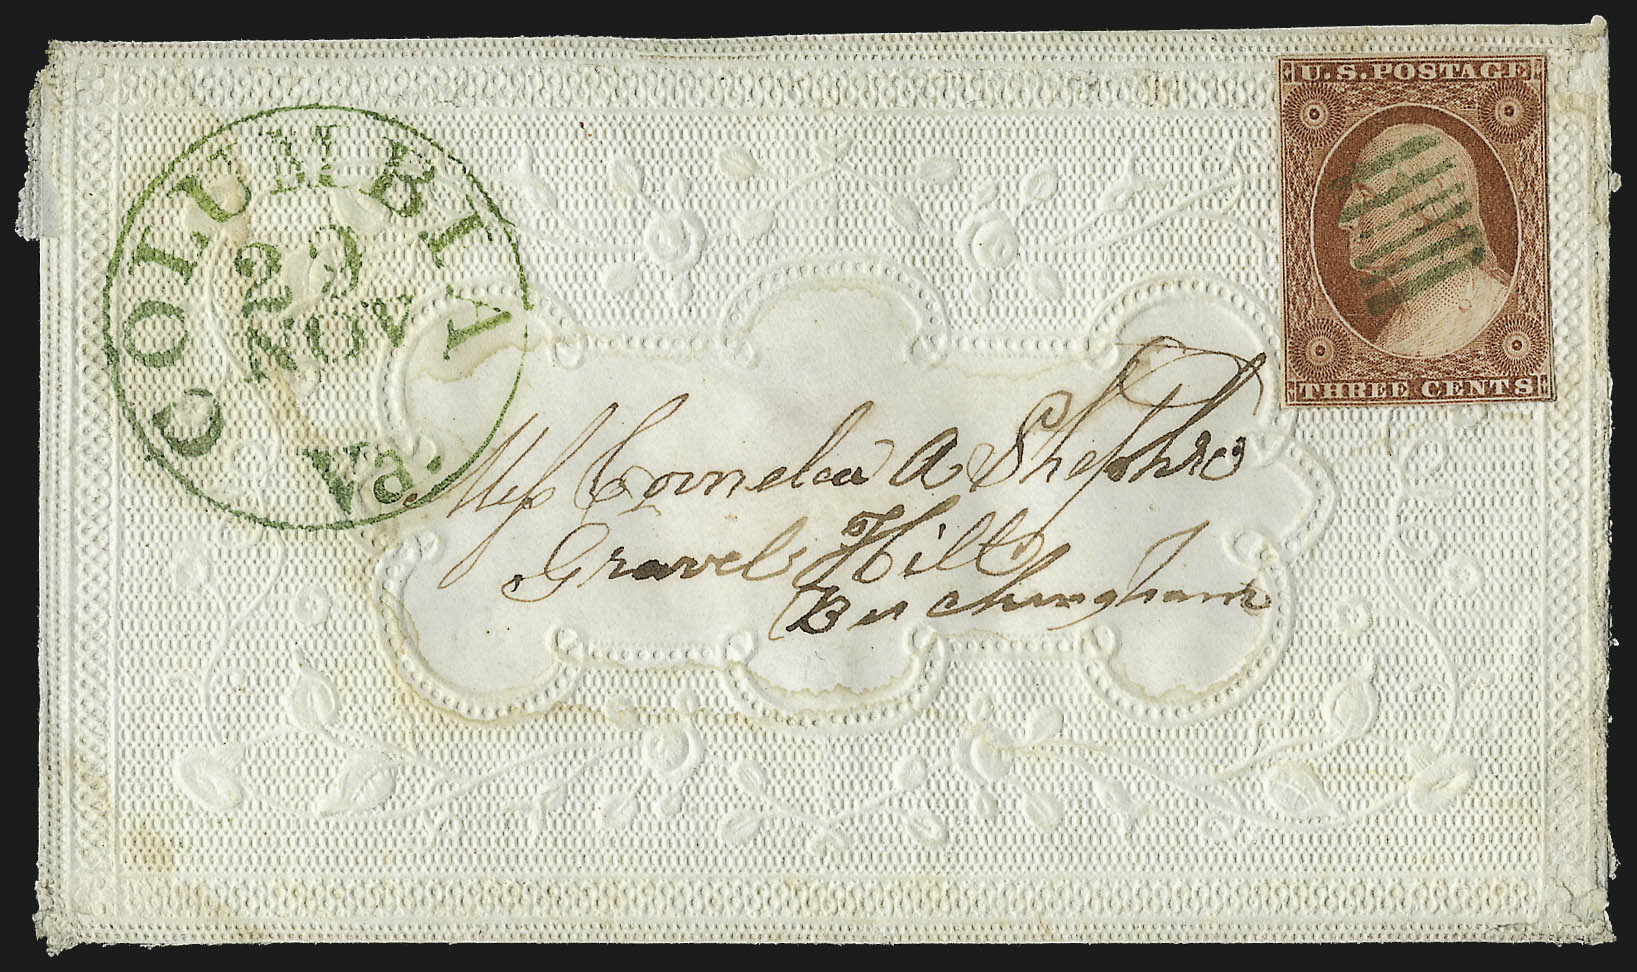 U.S. POSTAGE
THREE CENTS
COLUMBIA
29
NOV
Va.
Miss Cornelia A Shephrd
Gravel Hill
Buckingham